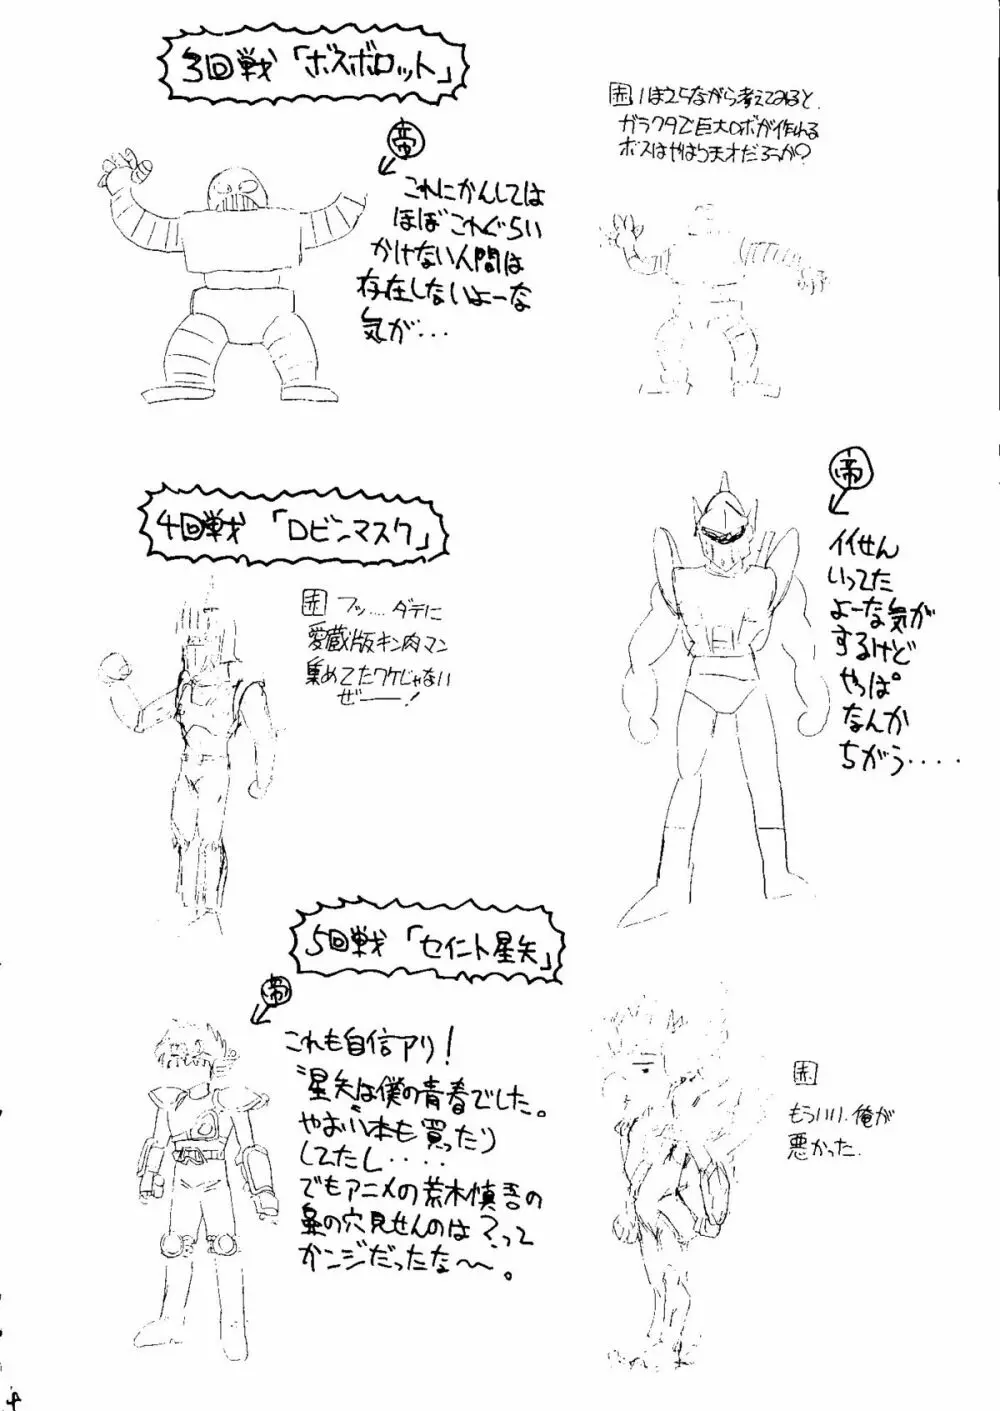 3回戦「ボスボロット」
帝
これにかんしては
ほぼこれぐらい
かけない人間は
存在しないよーな
気が・・・
赤 いまさらながら考えてみると、
ガラクタで巨大ロボが作れる
ボスはやはり天才だろうか?
4回戦「ロビンマスク」
赤 フッ…..ダテに
愛蔵版キン肉マン
集めてたワケじゃない
ぜ──!
帝
イイせん
いってた
よーな気が
するけど
やっぱ
なんか
ちがう・・・・
5回戦「セイント星矢」
帝
これも自信アリ!
〝星矢〟は僕の青春でした。
やおい本も買ったり
してたし・・・・
でもアニメの荒木慎吾の
鼻の穴見せんのは?って
カンジだったな〜。
赤
もういい、俺が
悪かった.